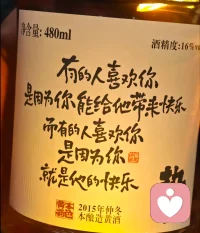 净含量: 480ml
酒精度:16%
有的人喜欢你
是因为你能给他带来快乐
而有的人喜欢你
是因为你
就是他的快乐
2015年仲冬
本酿造黄酒